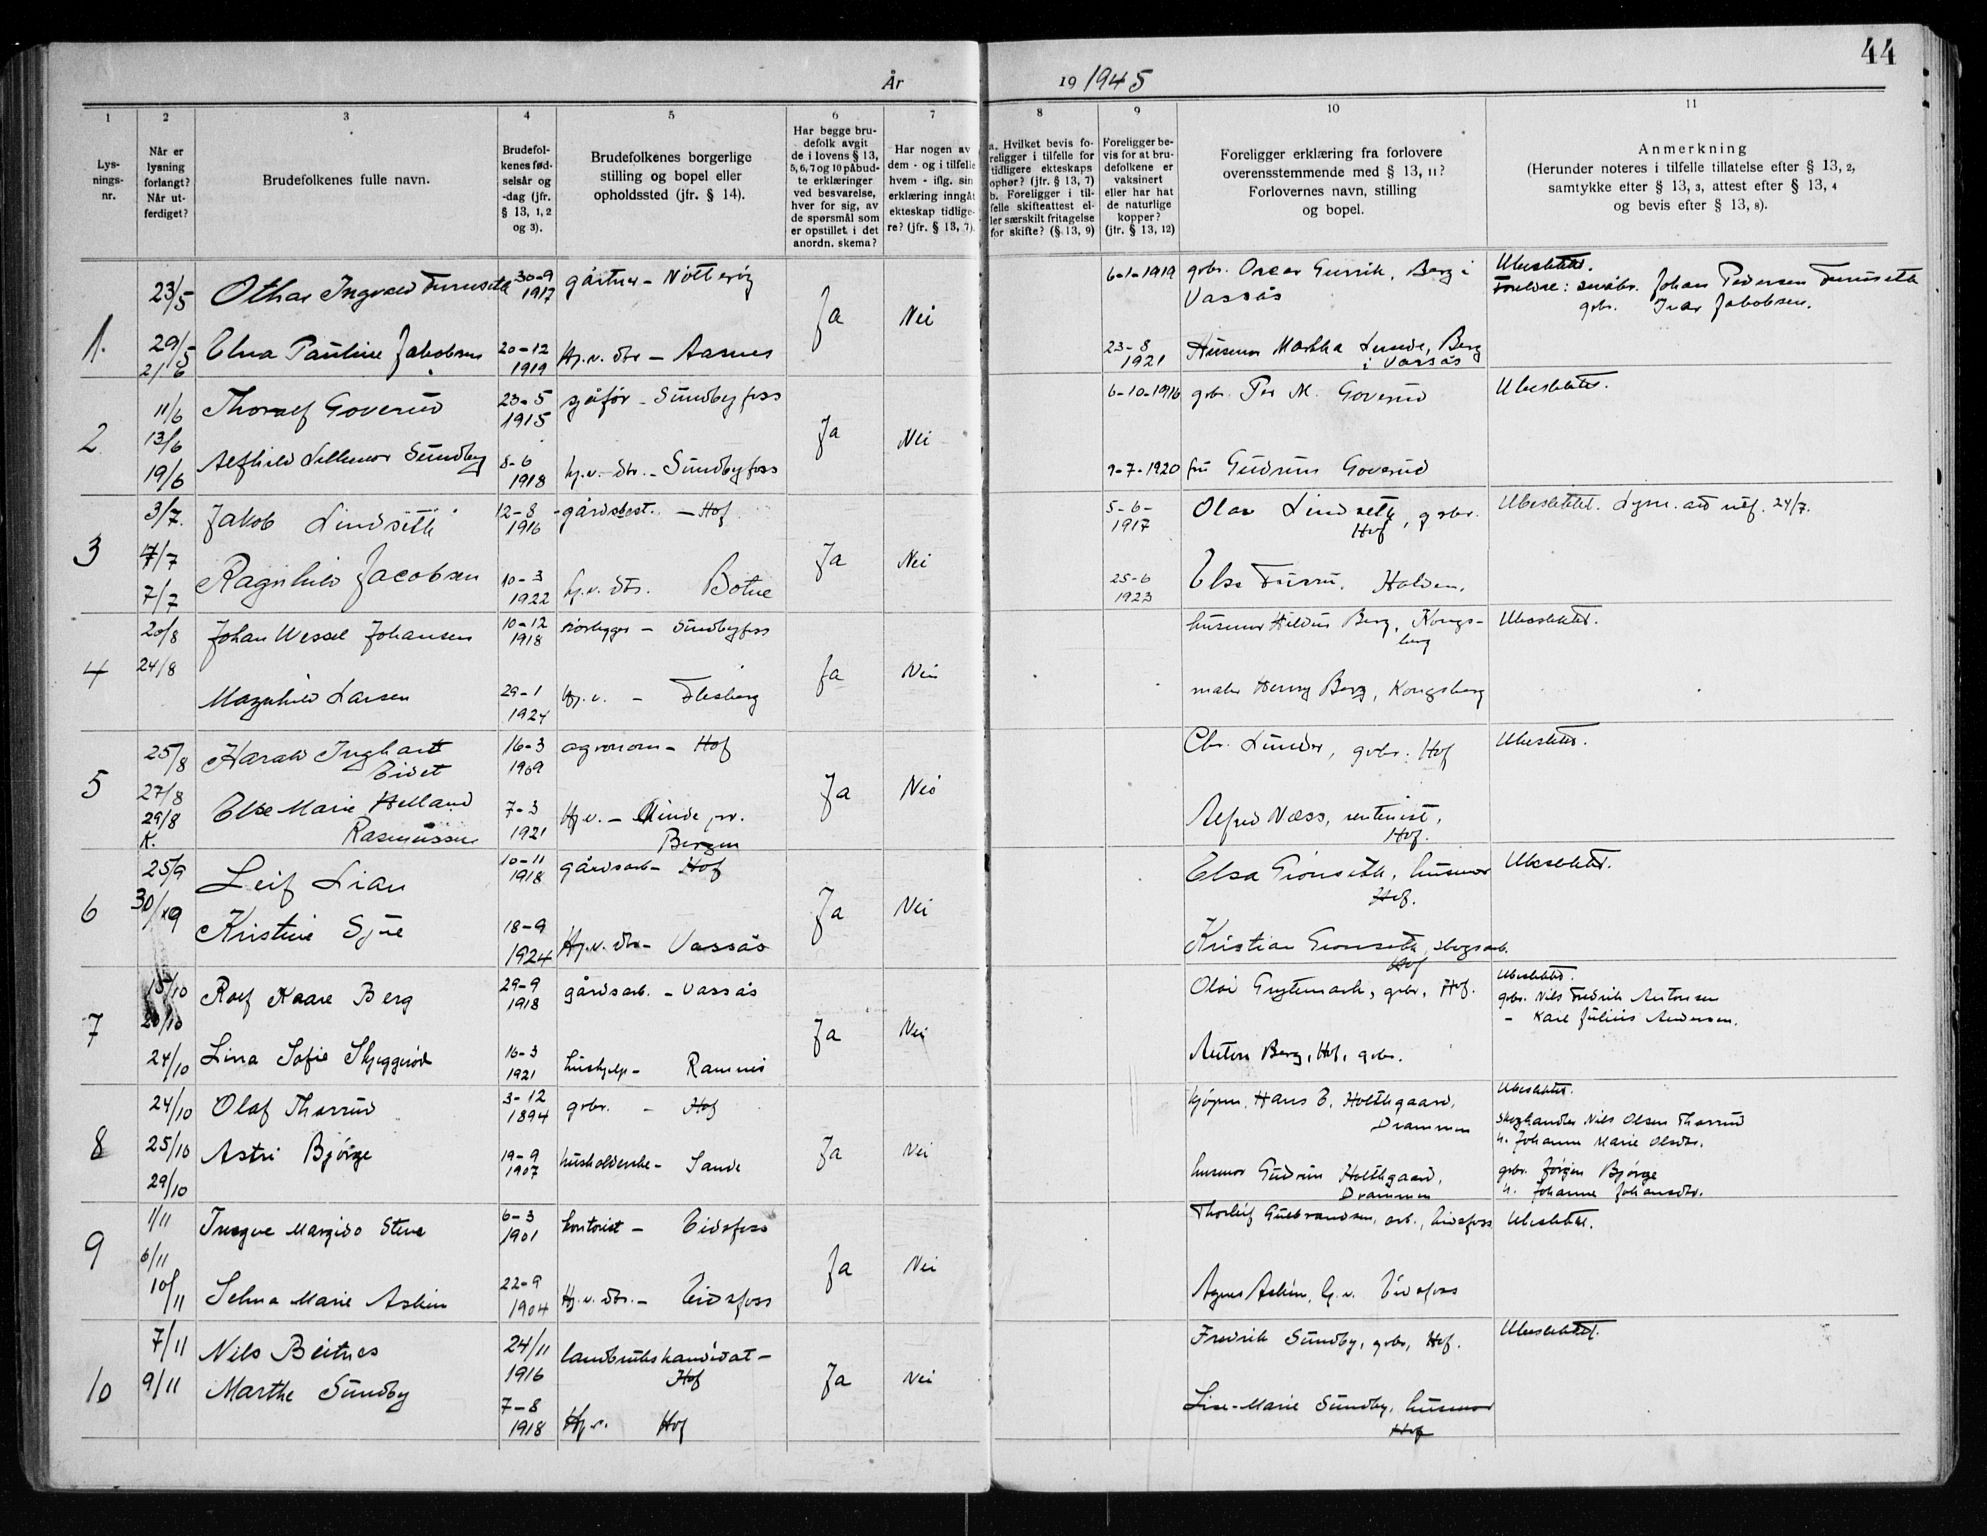 44
År 19 1945
1
2
3
4
5
6
7
8
9
10
11
Lys-
nings-
nr.
Når er
lysning
forlangt?
Når ut-
ferdiget?
Brudefolkenes fulle navn.
Brudefol-
kenes fød-
selsår og
-dag (jfr.
§ 13, 1, 2
og 3).
Brudefolkenes borgerlige
stilling og bopel eller
opholdssted (jfr. § 14).
Har begge bru-
defolk avgit
de i lovens § 13,
5, 6, 7 og 10 påbud-
te erklæringer
ved besvarelse,
hver for sig, av
de spørsmål som
er opstillet i det
anordn. skema?
Har nogen av
dem - og i tilfelle
hvem - iflg. sin
erklæring inngåt
ekteskap tidlige-
re? (jfr. § 13, 7).
a. Hvilket bevis fo-
religger i tilfelle for
tidligere ekteskaps
ophør? (jfr. § 13, 7)
b. Foreligger i til-
felle skifteattest el-
ler særskilt fritagelse
for skifte? (§ 13, 9)
Foreligger be-
vis for at bru-
defolkene er
vaksinert
eller har hat
de naturlige
kopper?
(jfr. § 13, 12)
Foreligger erklæring fra forlovere
overensstemmende med § 13, 11?
Forlovernes navn, stilling
og bopel.
Anmerkning
(Herunder noteres i tilfelle tillatelse efter § 13, 2,
samtykke efter § 13, 3, attest efter § 13, 4
og bevis efter § 13, 8).
1.
23/5
29/5
21/6
Othar Ingvald Furuseth
30-9
1917
gårtner - Nøtterøy
Ja
Nei
6-1-1919
grbr. Oscar Berg i
Vassås
Ubeslektet.
Foreldre: småbr. Johan Pedersen Furuseth
grbr. Ivar Jakobsen.
Elna Pauline Jakobsen
20-12
1919
Hj.v. dtr -
23-8
1921
Husmor Martha Berg
i Vassås
2
11/6
13/6
19/6
Thoralf Goverud
23-5
1915
sjåfør - Sundbyfoss
Ja
Nei
6-10-1916
grbr. Per M. Goverud
Ubeslektet.
Alfhild Lillemor Sundby
8-6
1918
hj.v. dtr. - Sundbyfoss
9-7-1920
fru Gudrun Goverud
3
3/7.
7/7
7/7
Jakob Lindseth
12-8
1916
gårdsbest. - Hof
Ja
Nei
5-6-
1917
Olav Lindseth, grbr.
Hof
Ubeslektet. Lysn. att utf. 24/7.
Ragnhild Jacobsen
10-3
1922
hj.v. dtr. Botne
25-6
1923
Else Furru. Halden.
4
20/8
24/8
Johan Wessel Johansen
10-12
1918
- Sundbyfoss
Ja
Nei
husmor Hildur Berg, Kongs-
berg
Ubeslektet.
Magnhild Larsen
29-1
1924
Hj.v. - Flesberg
maler Henry Berg, Kongsberg
5
25/8
27/8
29/8
K.
Harald Inghart
Eidet
16-3
1909
agronom - Hof
Ja
Nei
Chr. Lunder, grbr. Hof
Ubeslektet.
Else Marie Helland
Rasmussen
7-3
1921
Hj.v. - Minde pr.
Bergen
Alfred Næss, rentenist,
Hof.
6
25/9
30/9
Leif Lian
10-11
1918
gårdsarb - Hof
Ja
Nei
Elsa Grønseth, husmor
Hof.
Ubeslektet.
Kristine
18-9
1924
Hj.v. dtr - Vassås
Kristian Grønseth, skogsarb.
Hof
7
15/10
20/10
24/10
Rolf Kaare Berg
29-9
1918
gårdsarb. - Vassås
Ja
Nei
Olai Grytemark, grbr, Hof.
Ubeslektet.
grbr. Nils Fredrik Antonsen
- Karl Julius Andersen.
Lina Sofie Skjeggerød
16-3
1921
hushjelp - Ramnes
Anton Berg, Hof, grbr.
8
24/10
25/10
29/10
Olaf Thorrud
3-12
1894
grbr. - Hof
Ja
Nei
kjøpm. Hans E. Holthgaard,
Drammen
Ubeslektet.
Skoghandler Nils Olsen Thorrud
h. Johanne Marie Olsdtr.
Astri Bjørge
19-9
1907
husholderske - Sande
husmor Gudrun Holthgaard,
Drammen
grbr. Jørgen Bjørge
h. Johanne Johansdtr.
9
1/11
6/11
10/11
Trygve Margido Stene
6-3
1901
kontorist - Eidsfoss
Ja
Nei
Thorleif Gulbrandsen, arb., Eidsfoss
Ubeslektet.
Selma Marie Askim
22-9
1904
Hj.v. dtr. - Eidsfoss
Agnes Askim, hj.v. Eidsfoss
10
7/11
9/11
Nils Beitnes
24/11
1916
landbrukskandidat -
Hof
Ja
Nei
Fredrik Sundby, grbr, Hof.
Ubeslektet.
Marthe Sundby
7-8
1918
Hj.v. Hof
Lise-Marie Sundby, husmor
Hof